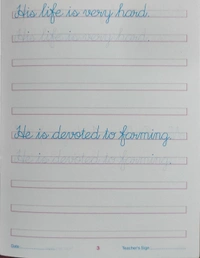 His life is very hard.
His life is very hard.
He is devoted to farming.
He is devoted to farming.
Date: 8 Teacher's Sign: